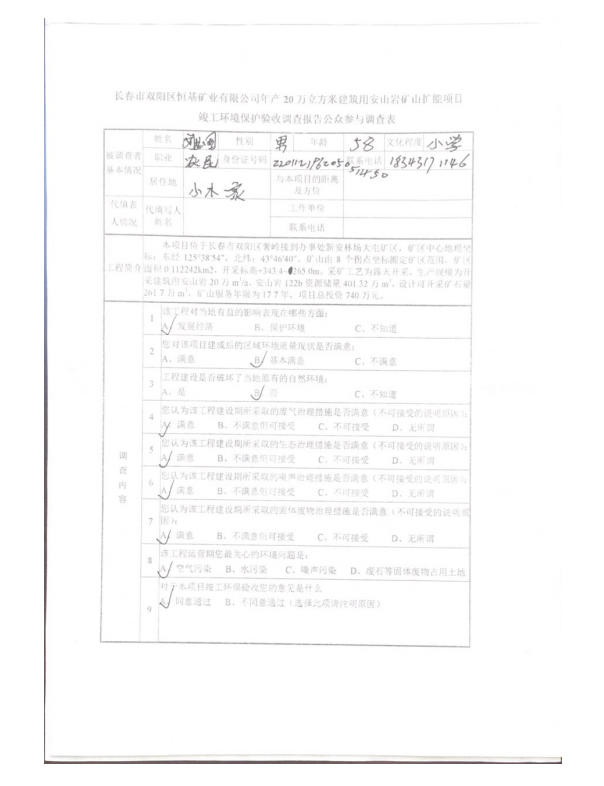 长春市双阳区恒基矿业有限公司年产 20 万立方米建筑用安山岩矿山扩能项目
竣工环境保护验收调查报告公众参与调查表
被调查者基本情况
姓名 性别 男 年龄 58 文化程度 小学
职业 农民 身份证号码 联系电话
居住地 与本项目的距离及方位
代填表人情况 代填写人姓名 工作单位
联系电话
工程简介
本项目位于长春市双阳区奢岭接到办事处新安林场大屯矿区，矿区中心地理坐
标：东经 125°38′54″、北纬：43°46′40″。矿山由 8 个拐点坐标圈定矿区范围，矿区
面积 0.112242km2，开采标高+343.4-265.0m。采矿工艺为露天开采，生产规模为开
采建筑用安山岩 20 万 m³/a，安山岩 122b 资源储量 401.32 万 m³，设计可开采矿石量
261.7 万 m³，矿山服务年限为 17.7 年，项目总投资 740 万元。
调查内容
1 该工程对当地有益的影响表现在哪些方面：
A、发展经济 B、保护环境 C、不知道
2 您对该项目建成后的区域环境质量现状是否满意：
A、满意 B、基本满意 C、不满意
3 工程建设是否破坏了当地原有的自然环境：
A、是 B、否 C、不知道
4 您认为该工程建设期所采取的废气治理措施是否满意（不可接受的说明原因）：
A、满意 B、不满意但可接受 C、不可接受 D、无所谓
5 您认为该工程建设期所采取的生态治理措施是否满意（不可接受的说明原因）：
A、满意 B、不满意但可接受 C、不可接受 D、无所谓
6 您认为该工程建设期所采取的噪声治理措施是否满意（不可接受的说明原因）：
A、满意 B、不满意但可接受 C、不可接受 D、无所谓
7 您认为该工程建设期所采取的固体废物治理措施是否满意（不可接受的说明原
因）：
A、满意 B、不满意但可接受 C、不可接受 D、无所谓
8 该工程运营期您最关心的环境问题是：
A、空气污染 B、水污染 C、噪声污染 D、废石等固体废物占用土地
9 对于本项目竣工环保验收您的意见是什么
A、同意通过 B、不同意通过（选择此项请注明原因）